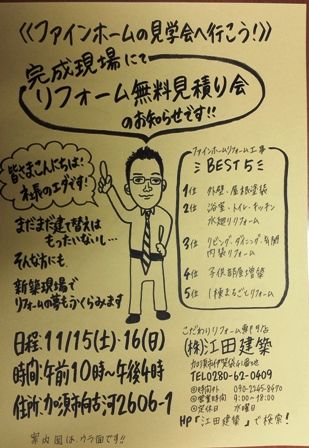 《ファインホームの見学会へ行こう!》
完成現場にて
リフォーム無料見積り会
のお知らせです!!
皆さまこんにちは!
社長のエダです!
まだまだ建て替えは
もったいないし…
そんな方にも
新築現場で
リフォームの夢もふくらみます
ファインホームリフォーム工事
BEST5
1位 外壁・屋根塗装
2位 浴室・トイレ・キッチン
水廻りリフォーム
3位 リビング・ダイニング・玄関
内装リフォーム
4位 子供部屋増築
5位 1棟まるごとリフォーム
日程:11/15(土)・16(日)
時間:午前10時〜午後4時
住所:加須市向古河2606-1
案内図は、ウラ面です!!
こだわりリフォーム専門店
(株)江田建築
加須市伊賀袋61番地
TEL0280-62-0409
◎時間外 090-2245-8490
◎営業時間 9:00〜18:00
◎定休日 水曜日
HP「江田建築」で検索!